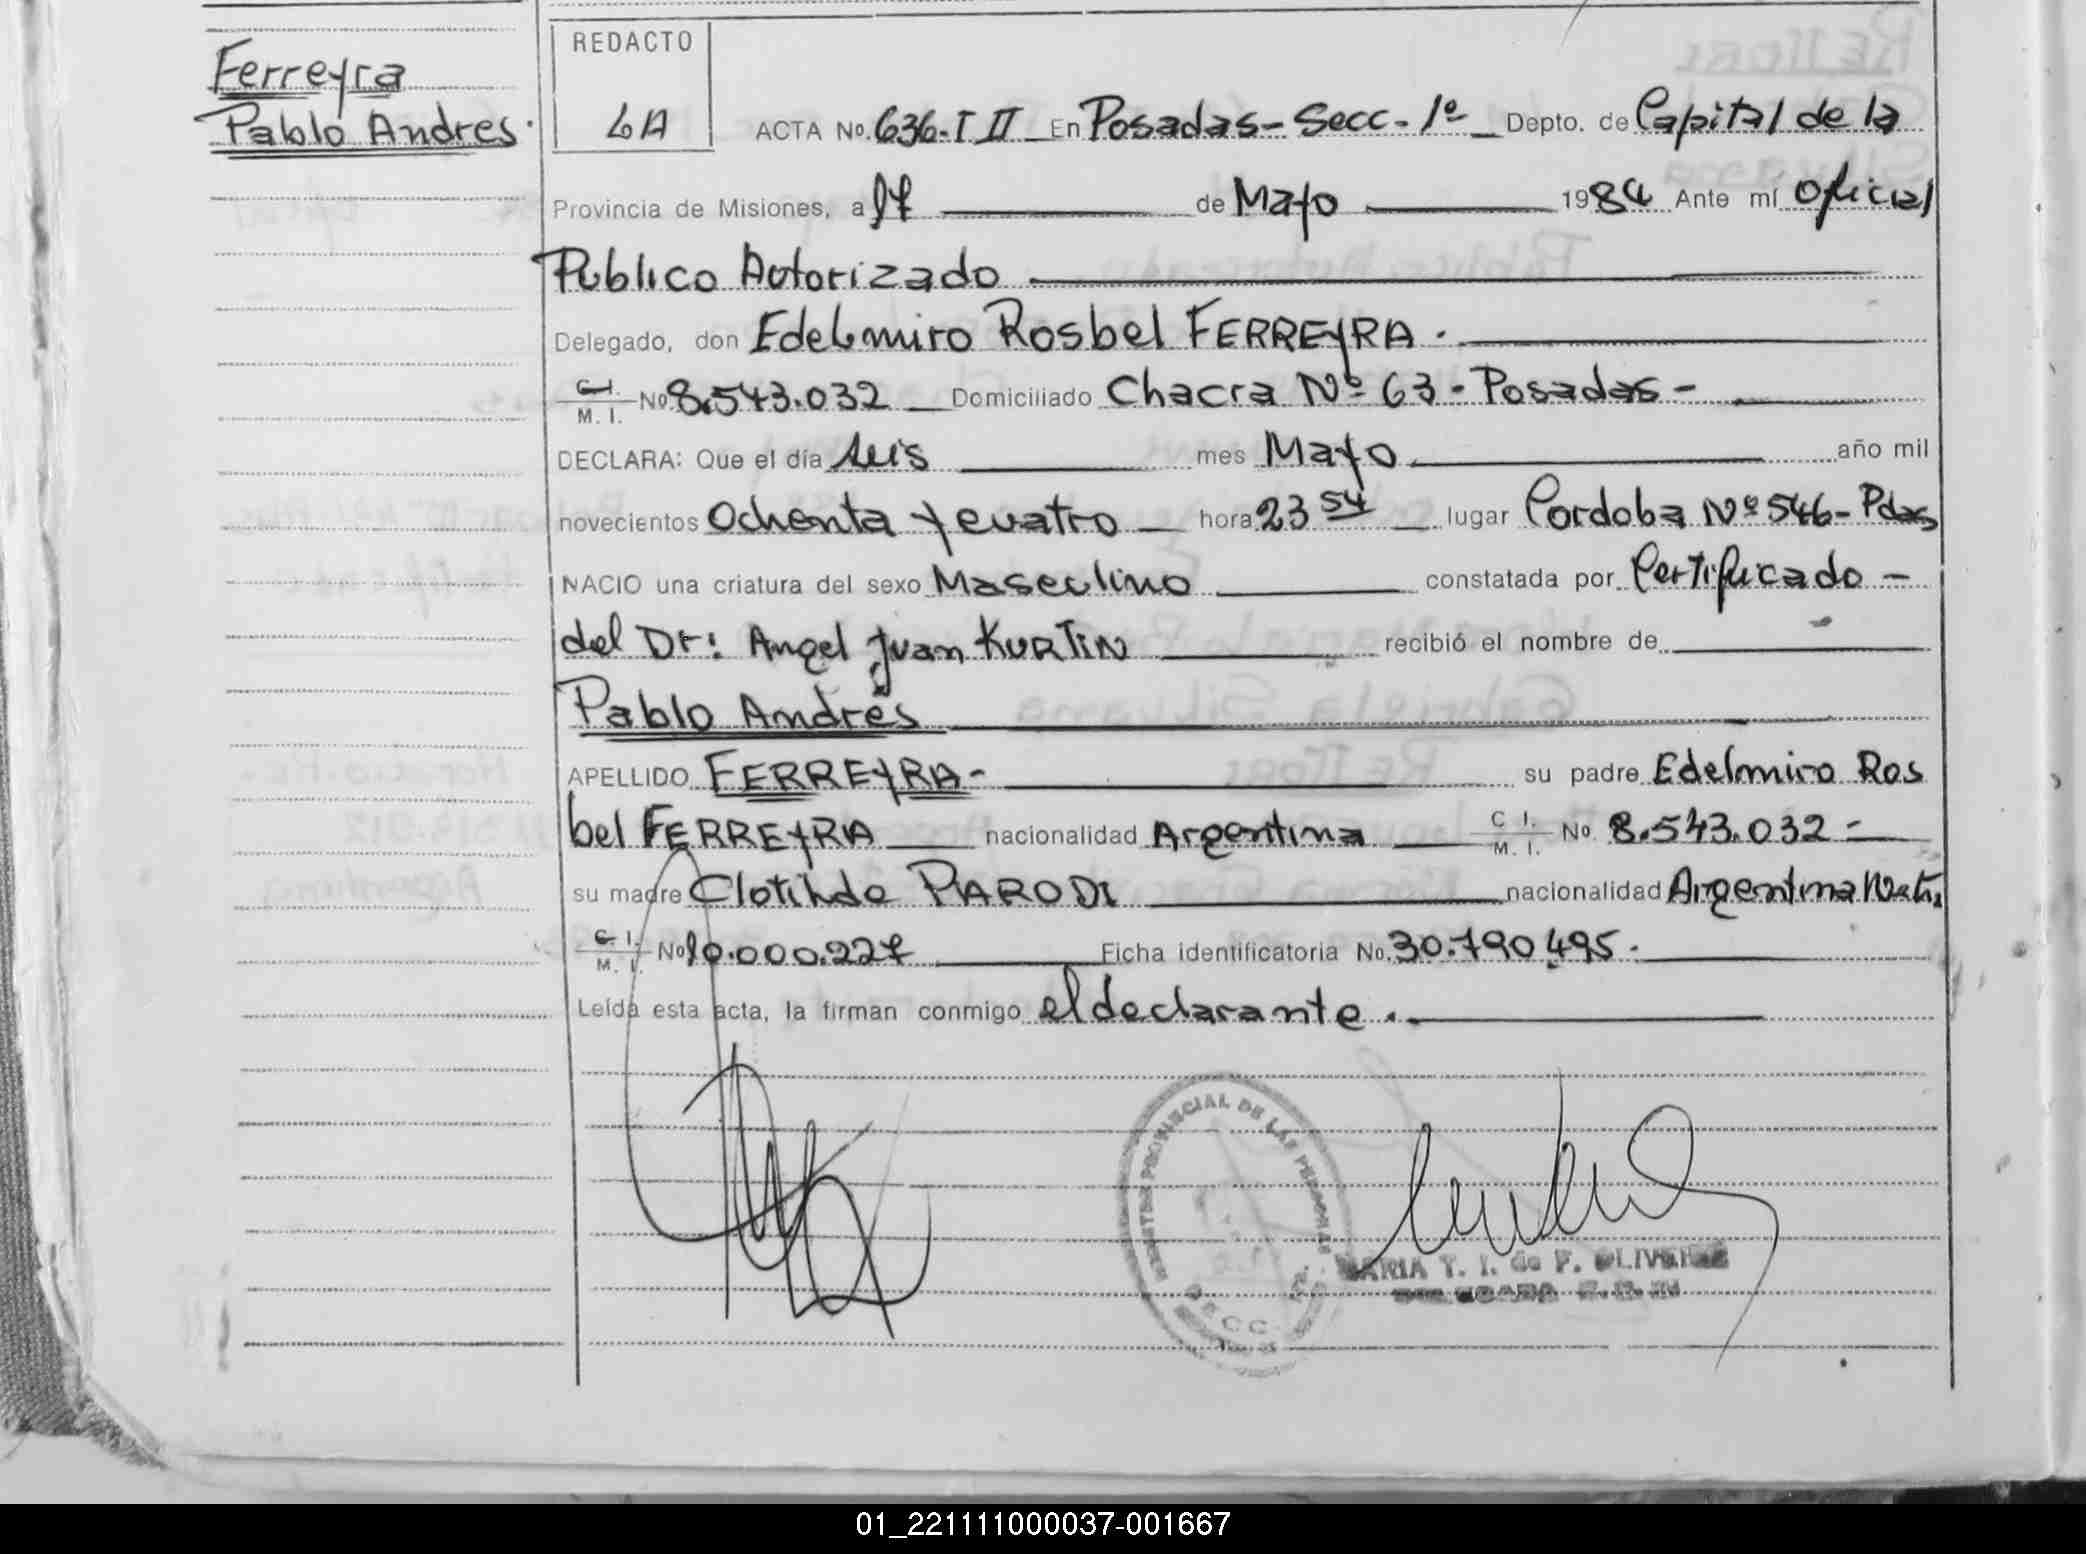 Ferreyra
Pablo Andres.
REDACTO
LA
ACTA No. 636-T II En Posadas-Secc-1º Depto. de Capital de la
Provincia de Misiones, a 17 de Mayo 1984 Ante mí Oficial
Publico Autorizado
Delegado, don Edelmiro Rosbel FERREYRA.
C. I. M. I. No 8.543.032 Domiciliado Chacra Nº 63-Posadas-
DECLARA: Que el día seis mes Mayo año mil
novecientos Ochenta y cuatro hora 23 54 lugar Cordoba Nº 546-Pdas
NACIO una criatura del sexo Masculino constatada por Certificado-
del Dr: Angel Juan KURTIN recibió el nombre de
Pablo Andrés
APELLIDO FERREYRA- su padre Edelmiro Ros
bel FERREYRA nacionalidad Argentina C. I. M. I. No. 8.543.032-
su madre Clotilde PARODI nacionalidad Argentina Nati.
C. I. M. I. No 10.000.227 Ficha identificatoria No. 30.790.495.
Leída esta acta, la firman conmigo el declarante.
REGISTRO PROVINCIAL DE LAS PERSONAS
MARIA T. I. de F. OLIVERA
01_221111000037-001667